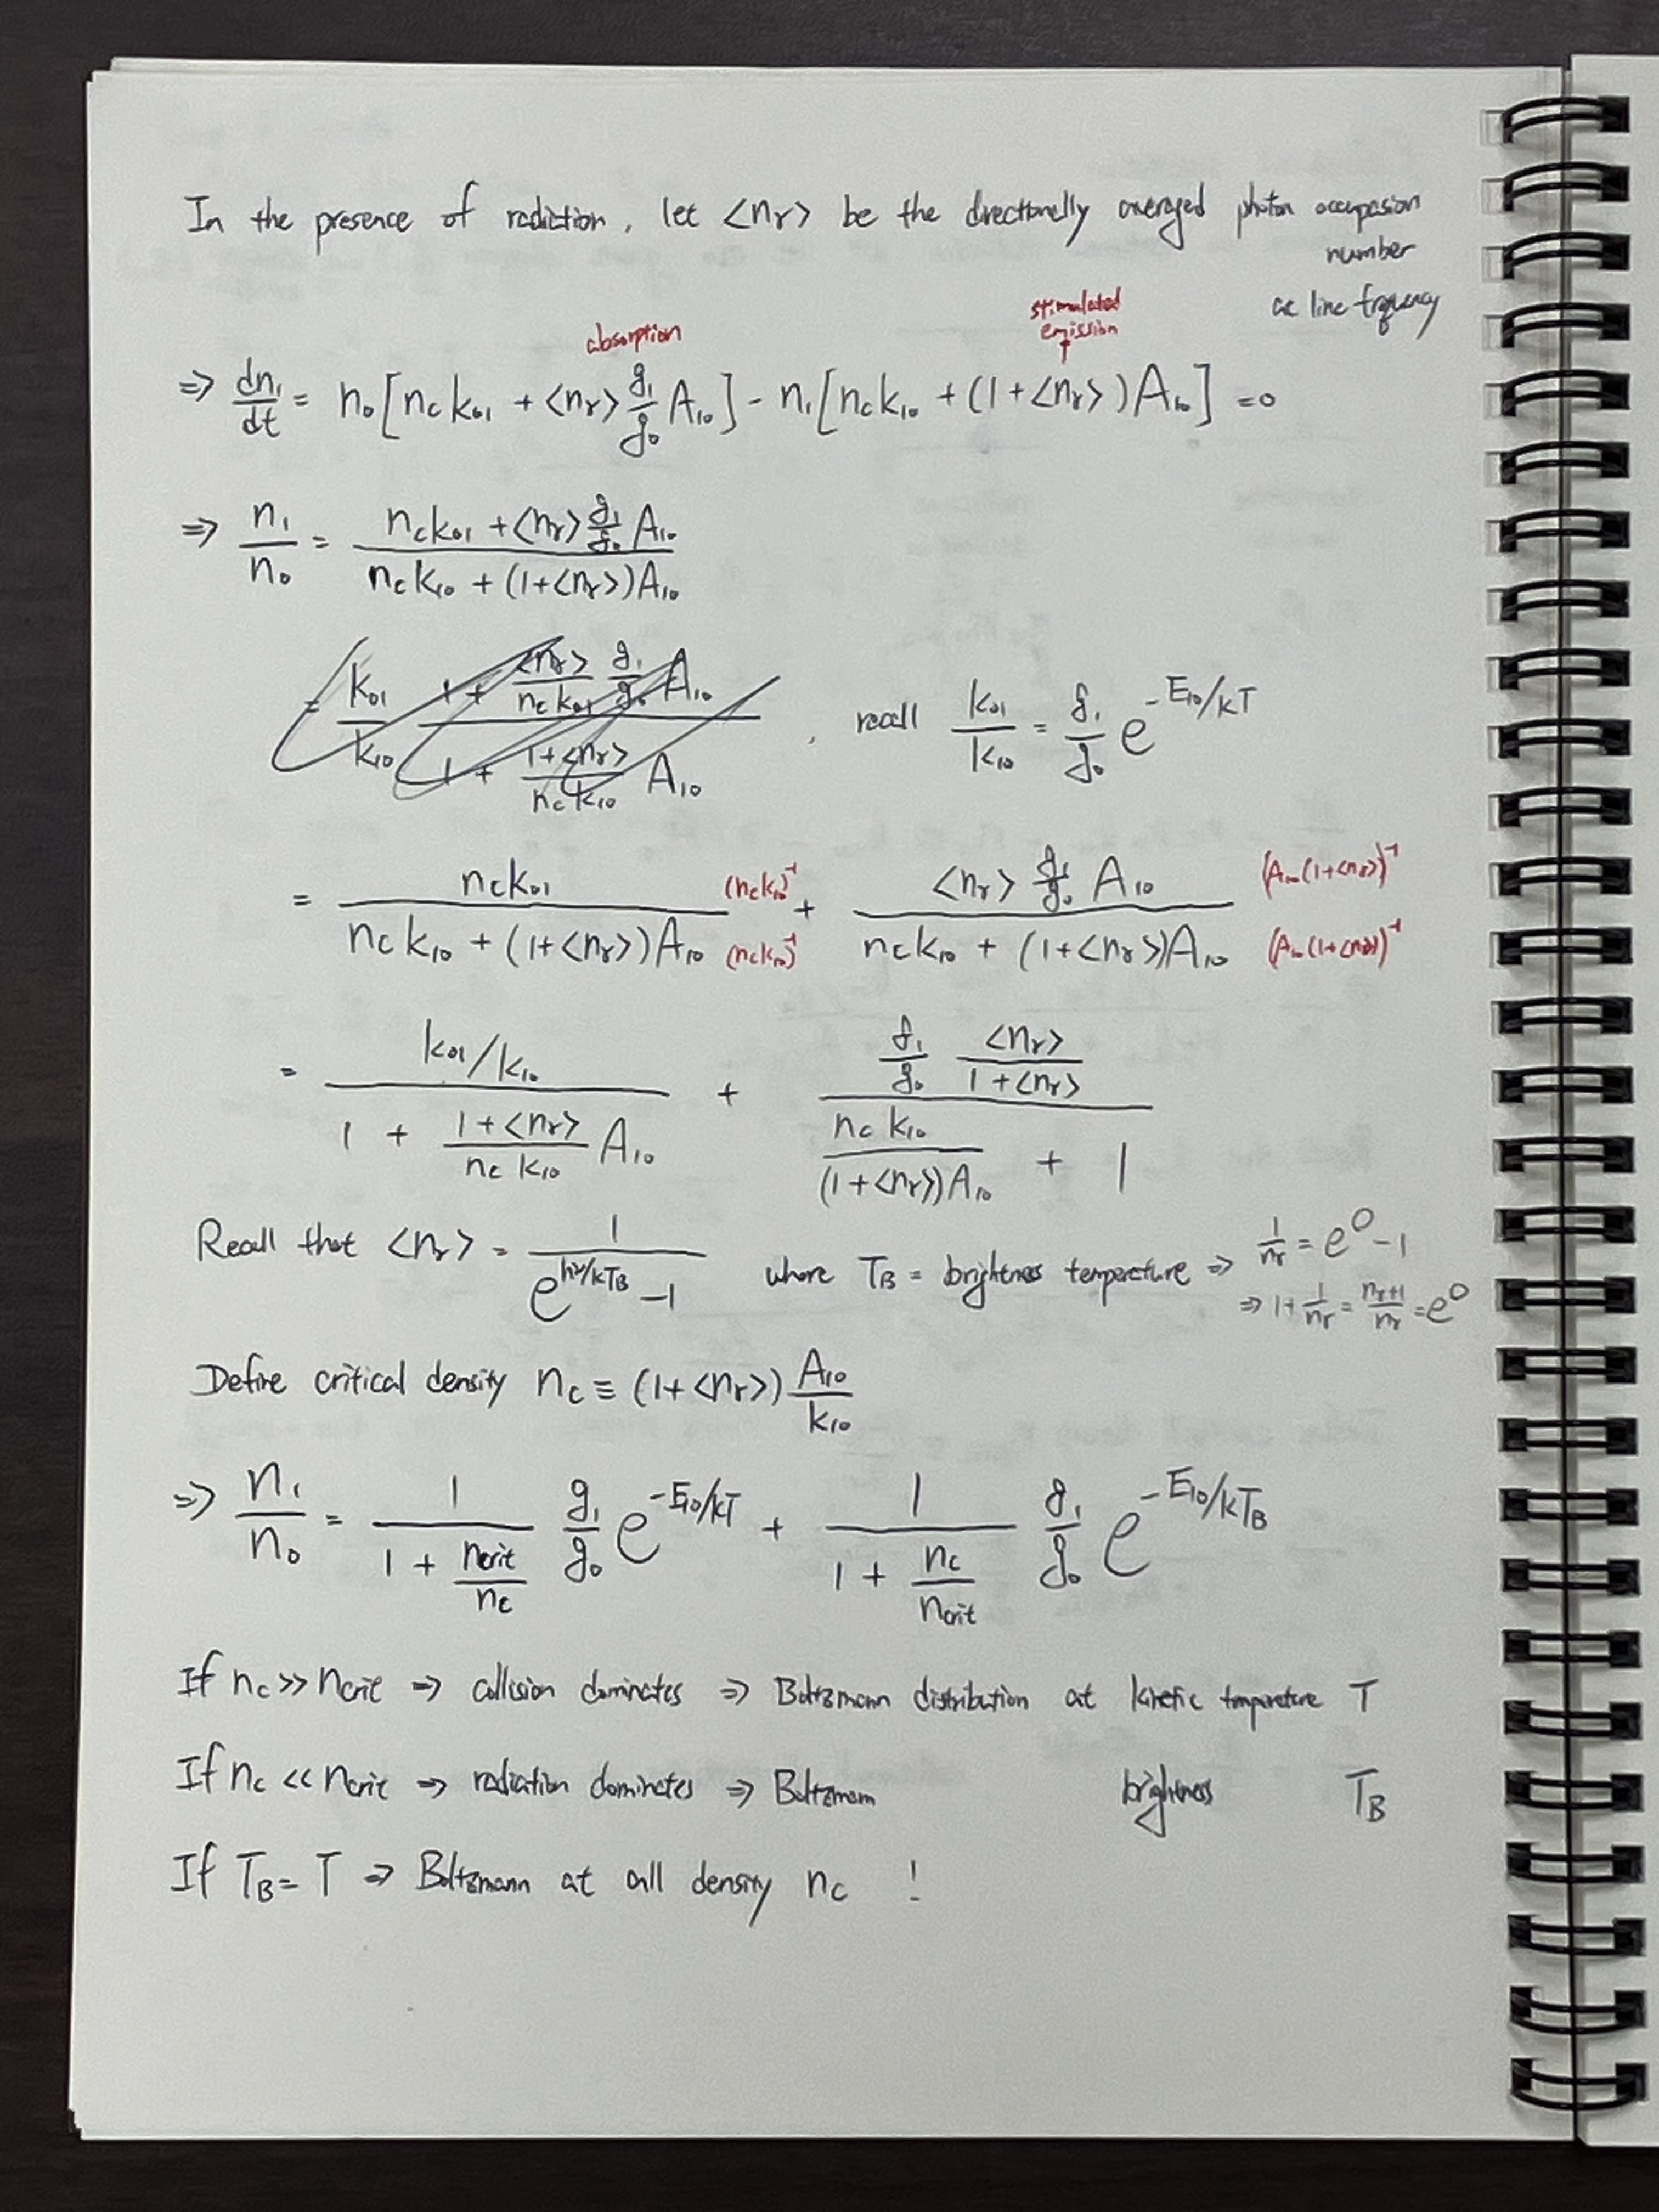 In the presence of radiation, let <nγ> be the directionally averaged photon occupasion
number
at line frquency
absorption
stimulated
emission
⇒ dn₁/dt = n₀[n_c k₀₁ + <nγ> g₁/g₀ A₁₀] - n₁[n_c k₁₀ + (1+<nγ>)A₁₀] = 0
⇒ n₁/n₀ = (n_c k₀₁ + <nγ> g₁/g₀ A₁₀) / (n_c k₁₀ + (1+<nγ>)A₁₀)
= k₀₁/k₁₀ (1 + <nγ>/(n_c k₀₁) g₁/g₀ A₁₀) / (1 + (1+<nγ>)/(n_c k₁₀) A₁₀) , recall k₀₁/k₁₀ = g₁/g₀ e^(-E₁₀/kT)
= n_c k₀₁ / (n_c k₁₀ + (1+<nγ>)A₁₀) (n_c k₁₀)⁻¹ (n_c k₁₀)⁻¹ + <nγ> g₁/g₀ A₁₀ / (n_c k₁₀ + (1+<nγ>)A₁₀) (A₁₀(1+<nγ>))⁻¹ (A₁₀(1+<nγ>))⁻¹
= (k₀₁/k₁₀) / (1 + (1+<nγ>)/(n_c k₁₀) A₁₀) + (g₁/g₀ <nγ>/(1+<nγ>)) / (n_c k₁₀/((1+<nγ>)A₁₀) + 1)
Recall that <nγ> = 1/(e^(hν/kT_B) - 1) where T_B = brightness temperature ⇒ 1/nγ = e^() - 1
⇒ 1 + 1/nγ = (nγ+1)/nγ = e^()
Define critical density n_c ≡ (1+<nγ>) A₁₀/k₁₀
⇒ n₁/n₀ = 1/(1 + n_crit/n_c) g₁/g₀ e^(-E₁₀/kT) + 1/(1 + n_c/n_crit) g₁/g₀ e^(-E₁₀/kT_B)
If n_c >> n_crit ⇒ collision dominates ⇒ Boltzmann distribution at kinetic tmpereture T
If n_c << n_crit ⇒ radiation dominates ⇒ Boltzmann brightness T_B
If T_B = T ⇒ Boltzmann at all density n_c !